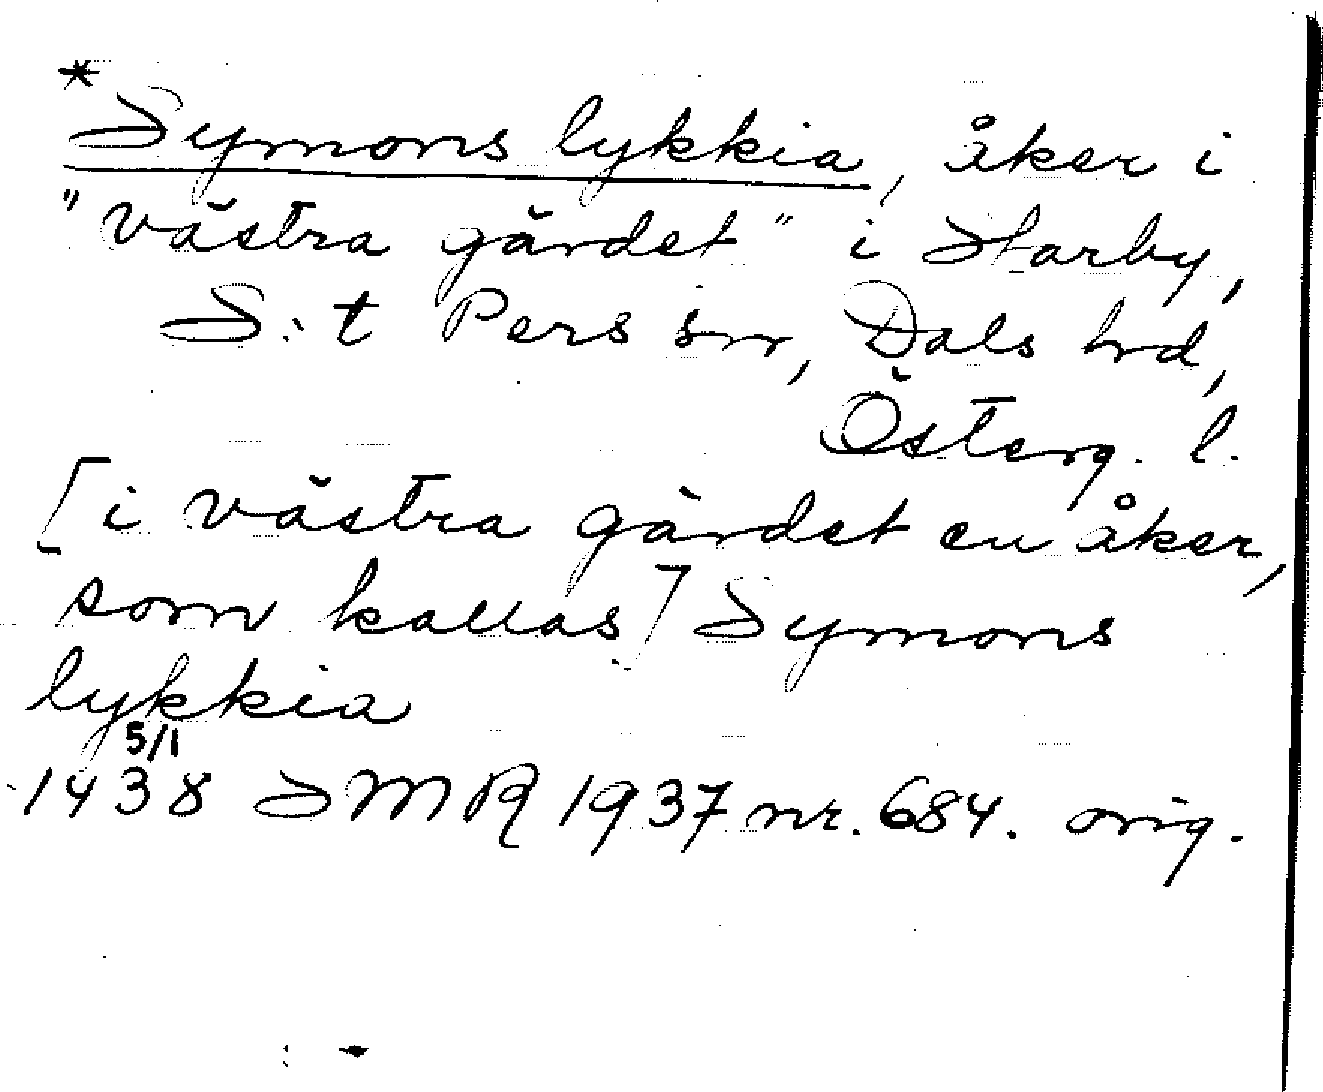 *
Symons lykkia, åker i
"västra gärdet" i Starby,
S:t Pers sn, Dals hd,
Österg. l.
[i västra gärdet en åker,
som kallas] Symons
lykkia
5/1
1438 SMR 1937 nr. 684. orig.